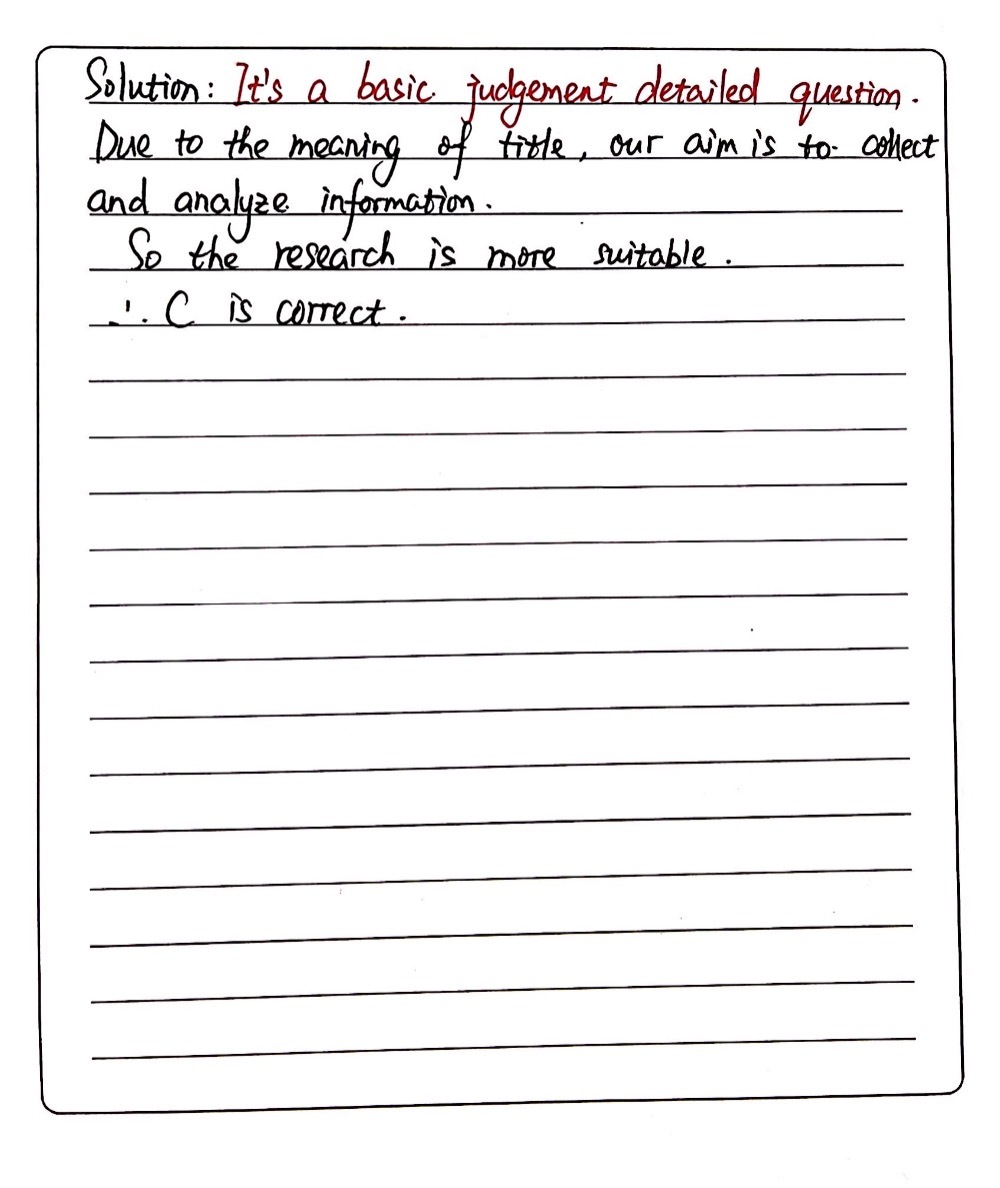 Solution: It's a basic judgement detailed question.
Due to the meaning of title, our aim is to collect
and analyze information.
So the research is more suitable.
∴ C is correct.